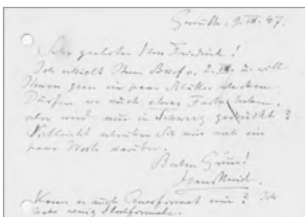 9.III.47.
Sehr geehrter Herr Friedrich!
Ich erhielt Ihren Brief v. 2.III. u. will
Ihnen gern ein paar
Dürfen es auch etwas Farbe haben,
oder wird nur in Schwarz gedruckt?
Vielleicht schreiben Sie mir noch ein
paar Worte darüber.
Besten Gruss!
Hans Meid.
Kann es auch Querformat sein? Ich
habe wenig Hochformate.